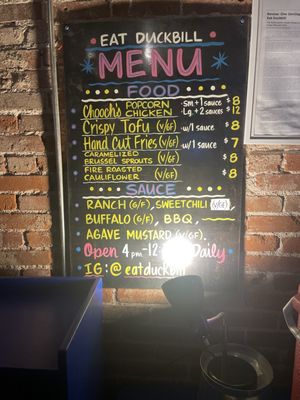 EAT DUCKBILL
MENU
FOOD
Chooch's POPCORN CHICKEN · sm + 1 sauce $8
· Lg. + 2 sauces $12
Crispy Tofu (V/GF) · w/1 sauce $8
Hand Cut Fries (V/GF) · w/1 sauce $7
CARAMELIZED
BRUSSEL SPROUTS (V/GF) $8
FIRE ROASTED
CAULIFLOWER (V/GF) $8
SAUCE
RANCH (G/F), SWEET CHILI (V/GF)
BUFFALO (G/F), BBQ,
AGAVE MUSTARD (V/GF).
Open 4pm-12 Daily
IG: @eatduckbill